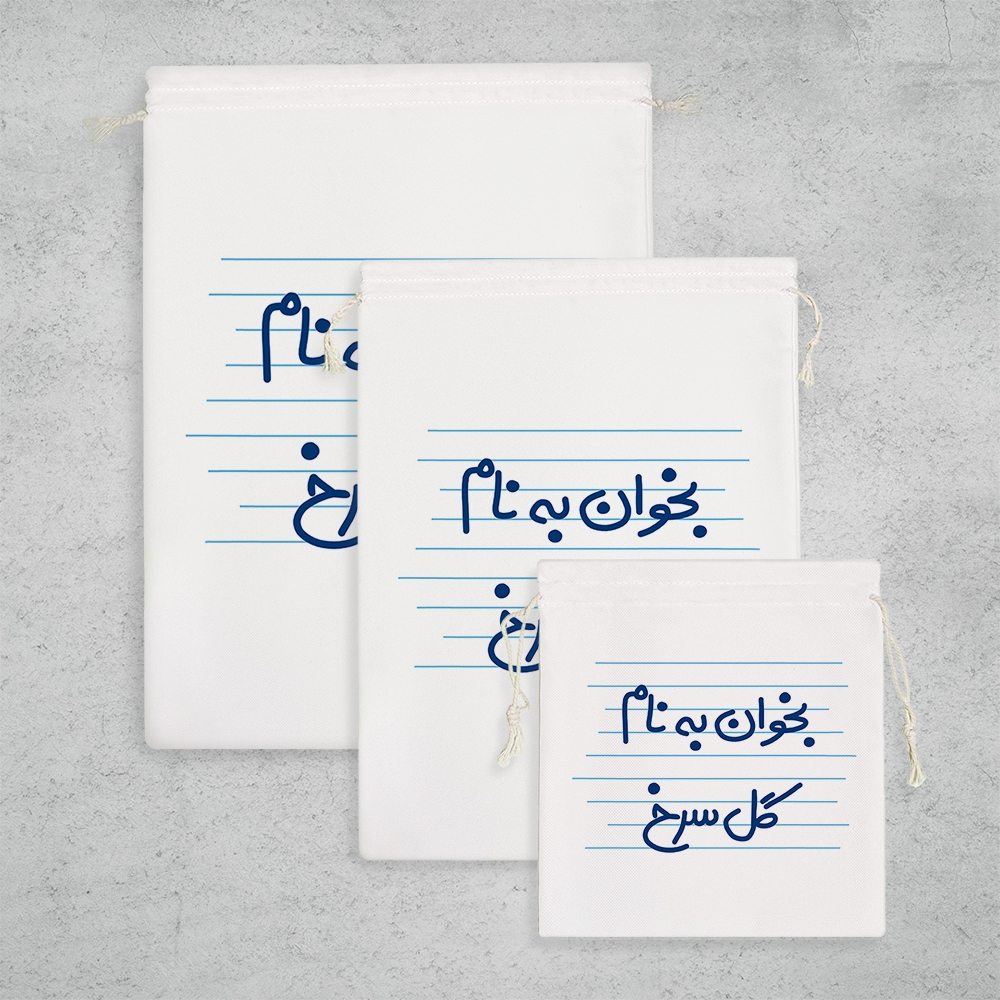 نام
رخ
بخوان به نام
رخ
بخوان به نام
گل سرخ